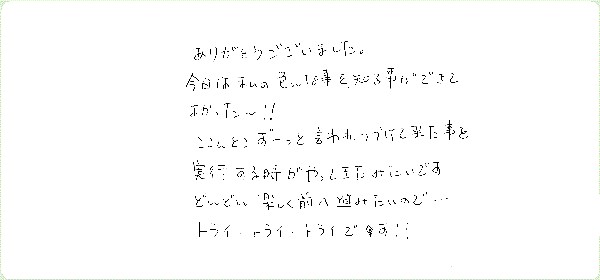 ありがとうございました。
今日は私の色んな事を、知る事ができて
よかった〜!!
ここんとこずーっと言われつづけて来た事を
実行する時がやって来たみたいです
どんどん楽しく前へ進みたいので…
トライ・トライ・トライです!!